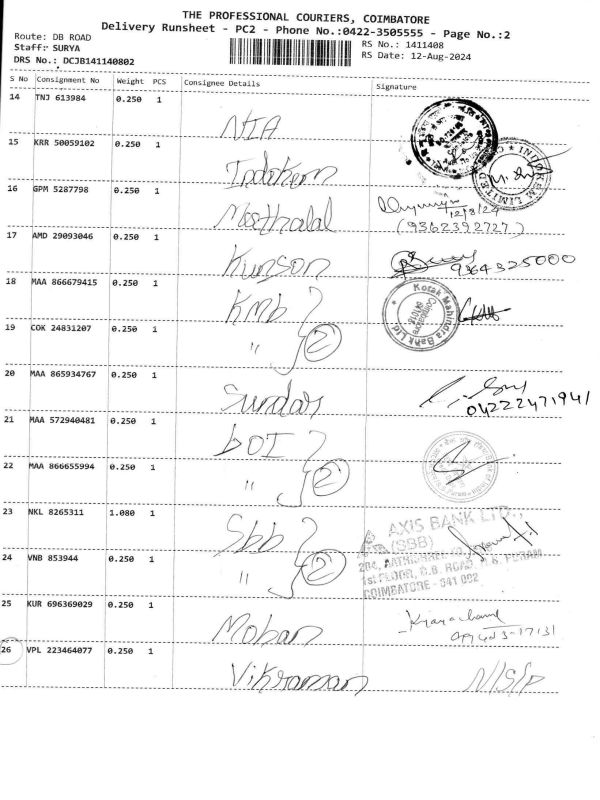 THE PROFESSIONAL COURIERS, COIMBATORE
Delivery Runsheet - PC2 - Phone No.:0422-3505555 - Page No.:2
Route: DB ROAD
Staff: SURYA
DRS No.: DCJB141140802
RS No.: 1411408
RS Date: 12-Aug-2024
S No Consignment No Weight PCS Consignee Details Signature
14 TNJ 613984 0.250 1 NIA
15 KRR 50059102 0.250 1 Indokem
INDOKEM LIMITED
16 GPM 5287798 0.250 1 Mosthalal
12/8/24
(9362392727)
17 AMD 29093046 0.250 1 Kunson
9364325000
18 MAA 866679415 0.250 1 KMb
Kotak Mahindra Bank Ltd
Coimbatore
19 COK 24831207 0.250 1 " 2
20 MAA 865934767 0.250 1 Sundar
04222471941
21 MAA 572940481 0.250 1 bOI
22 MAA 866655994 0.250 1 " 2
23 NKL 8265311 1.080 1 Sbb
AXIS BANK LTD.,
(SBB)
1st FLOOR, D.B. ROAD, R.S. PURAM
COIMBATORE - 641 002
24 VNB 853944 0.250 1 " 2
25 KUR 696369029 0.250 1 Mohan
26 VPL 223464077 0.250 1 Vikraman N/S/P